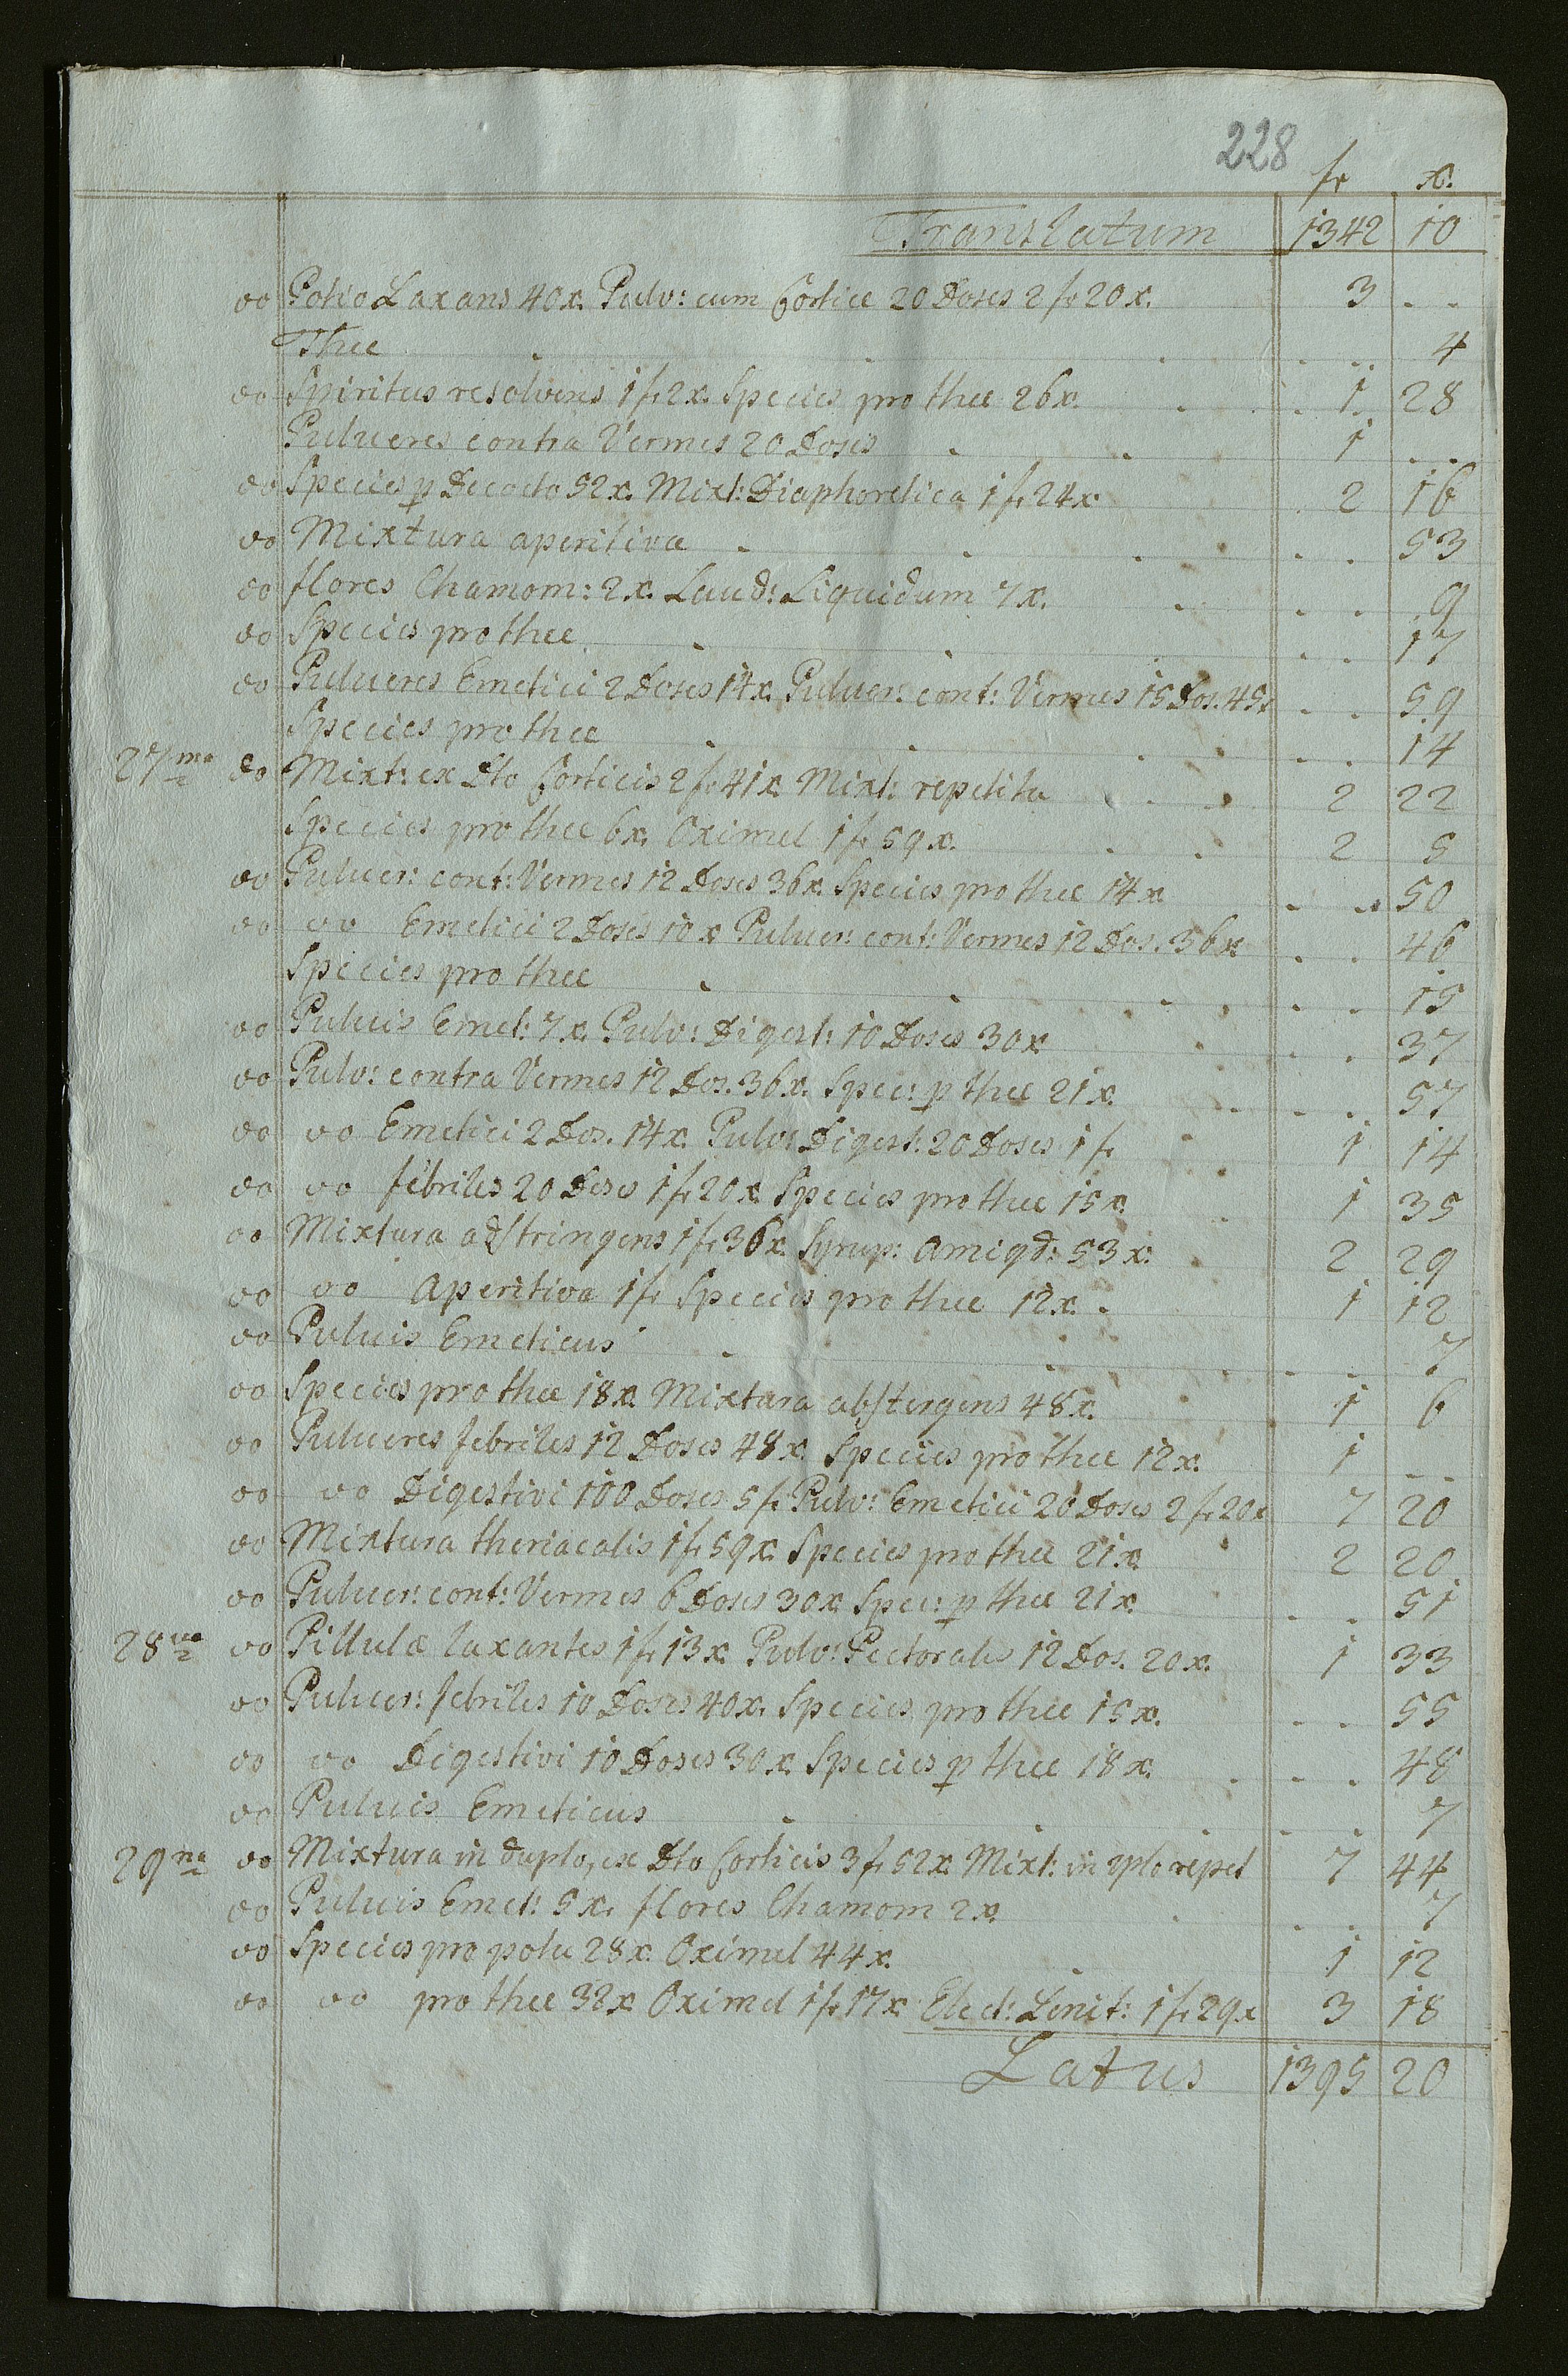 228
fr x.
Translatum 1342 10
oo Potio Laxans 40x. Pulv: cum Cortice 20 Doses 2 fr 20x. 3 - -
Thee . . . . . 4
oo Spiritus resolvens 1 fr 2x. Species pro thee 26x. 1 28
Pulueres contra Vermes 20 Doses 1 - -
oo Species p Decocto 52x. Mixt: Diaphoretica 1 fr 24x 2 16
oo Mixtura aperitiva . . . . 53
oo flores Chamom: 2x. Laud: Liquidum 7x. . . . 9
oo Species pro thee . . . . 17
oo Pulueres Emetici 2 Doses 14x. Puluer: cont: Vermes 15 Dos. 45x . . 59
Species pro thee . . . . 14
27ma oo Mixt: ex Dto Corticis 2 fr 41x Mixt: repetita 2 22
Species pro thee 6x. Oximel 1 fr 59x. 2 5
oo Puluer: cont: Vermes 12 Doses 36x. Species pro thee 14x . . 50
oo oo Emetici 2 Doses 10x Puluer: cont: Vermes 12 Dos. 36x . . 46
Species pro thee . . . . 15
oo Puluis Emet: 7x. Pulv: Digest: 10 Doses 30x . . 37
oo Pulv: contra Vermes 12 Dos. 36x. Spec: p thee 21x. . . 57
oo oo Emetici 2 Dos. 14x Pulv: Digest: 20 Doses 1 fr 1 14
oo oo febriles 20 Doses 1 fr 20x. Species pro thee 15x. 1 35
oo Mixtura adstringens 1 fr 36x. Syrup: Amigd: 53x. 2 29
oo oo Aperitiva 1 fr Species pro thee 12x. 1 12
oo Puluis Emeticus . . . . 7
oo Species pro thee 18x. Mixtura abstergens 48x. 1 6
oo Pulueres febriles 12 Doses 48x. Species pro thee 12x. 1 - -
oo oo Digestivi 100 Doses 5 fr Pulv: Emetici 20 Doses 2 fr 20x 7 20
oo Mixtura theriacalis 1 fr 59x. Species pro thee 21x. 2 20
oo Puluer: cont: Vermes 6 Doses 30x Spec: p thee 21x. . . 51
28va oo Pillulæ laxantes 1 fr 13x. Pulv: Pectorales 12 Dos. 20x. 1 33
oo Puluer: febriles 10 Doses 40x. Species pro thee 15x. . . 55
oo oo Digestivi 10 Doses 30x. Species p thee 18x. . . 48
oo Puluis Emeticus . . . . 7
29na oo Mixtura in duplo, ex Dto Corticis 3 fr 52x Mixt: in 2plo repet 7 44
oo Puluis Emet: 5x. flores Chamom 2x. . . 7
oo Species pro potu 28x. Oximel 44x. 1 12
oo oo pro thee 32x Oximel 1 fr 17x Elect: Lenit: 1 fr 29x 3 18
Latus 1395 20